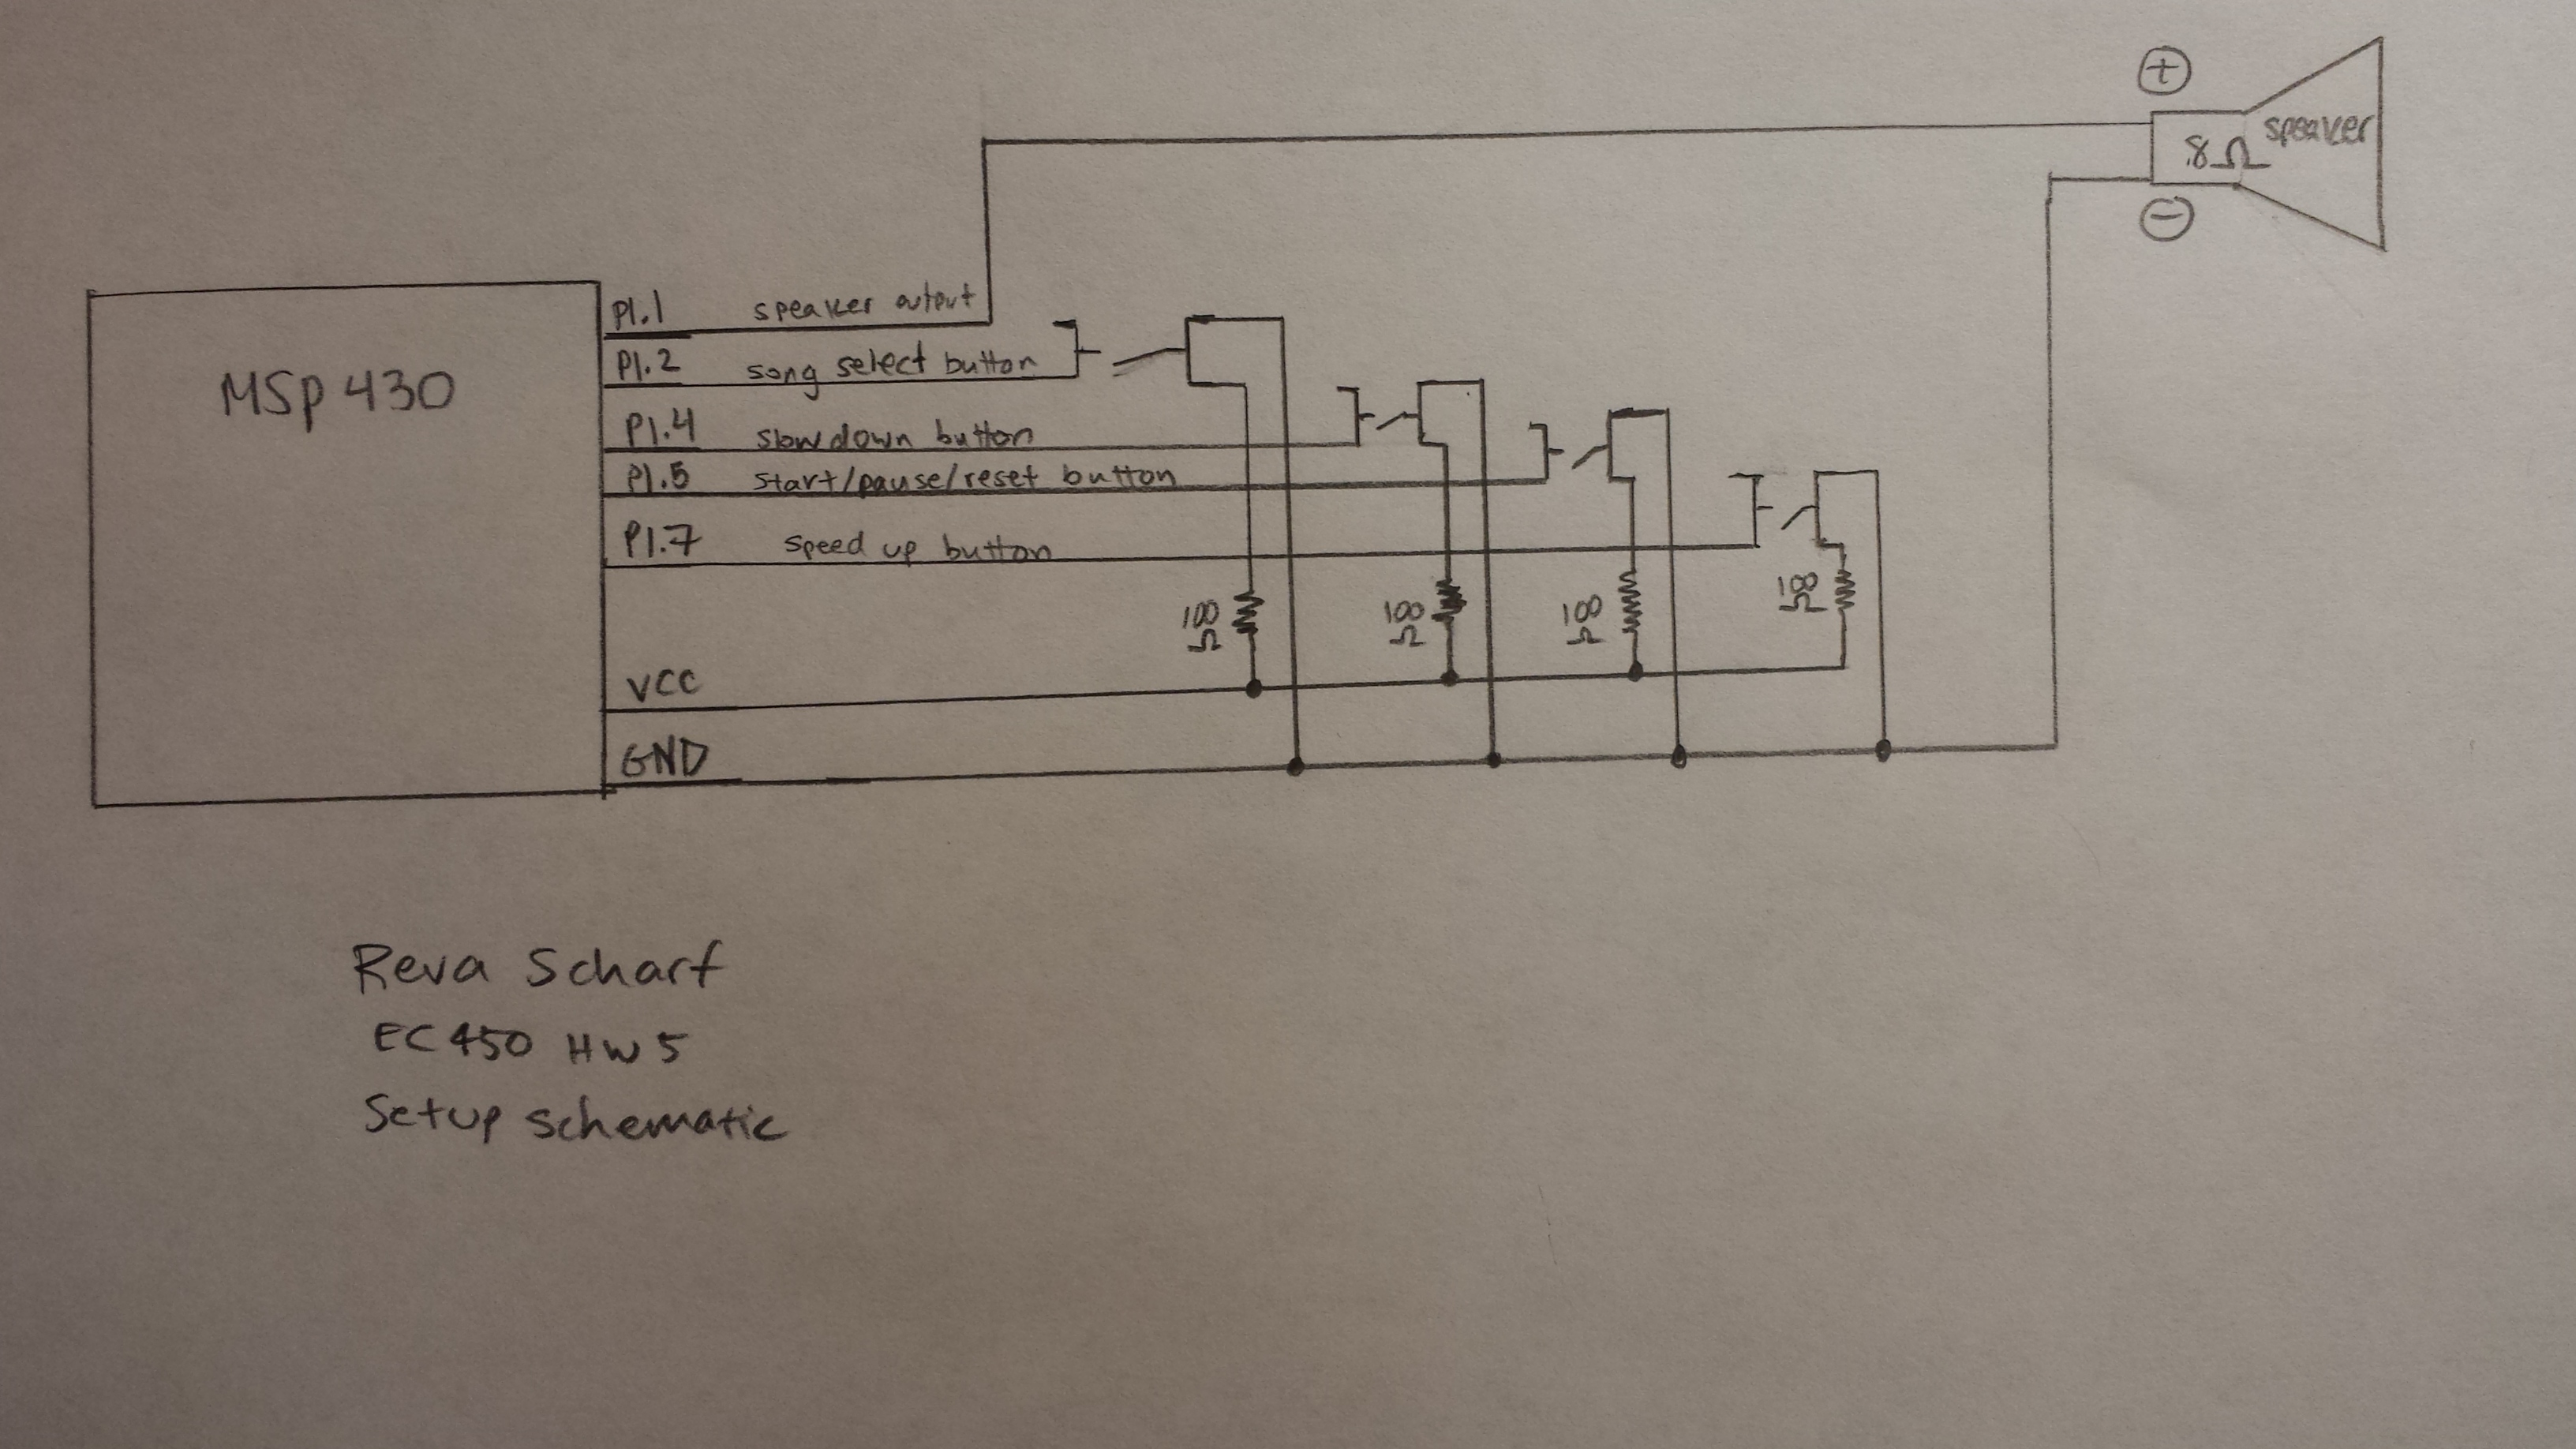 +
speaker
.8Ω
−
MSP430
P1.1 speaker output
P1.2 song select button
P1.4 slow down button
P1.5 start/pause/reset button
P1.7 speed up button
100
Ω
100
Ω
100
Ω
100
Ω
VCC
GND
Reva Scharf
EC450 HW5
Setup schematic